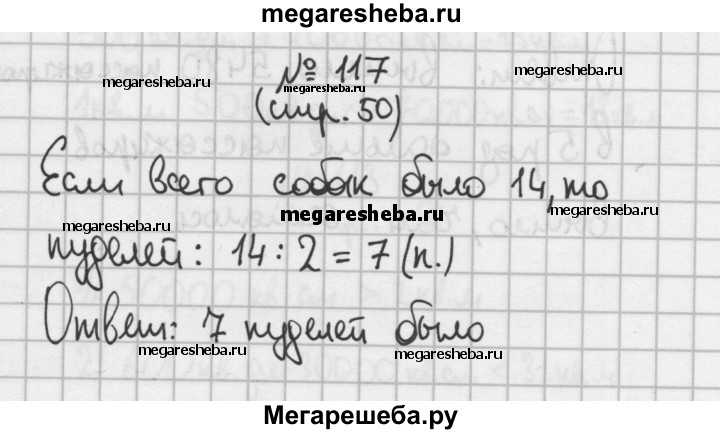 megaresheba.ru
№ 117
megaresheba.ru
megaresheba.ru
megaresheba.ru
(стр. 50)
Если всего собак было 14, то
megaresheba.ru
megaresheba.ru
megaresheba.ru
пуделей: 14 : 2 = 7 (п.)
Ответ: 7 пуделей было
megaresheba.ru
megaresheba.ru
Мегарешеба.ру